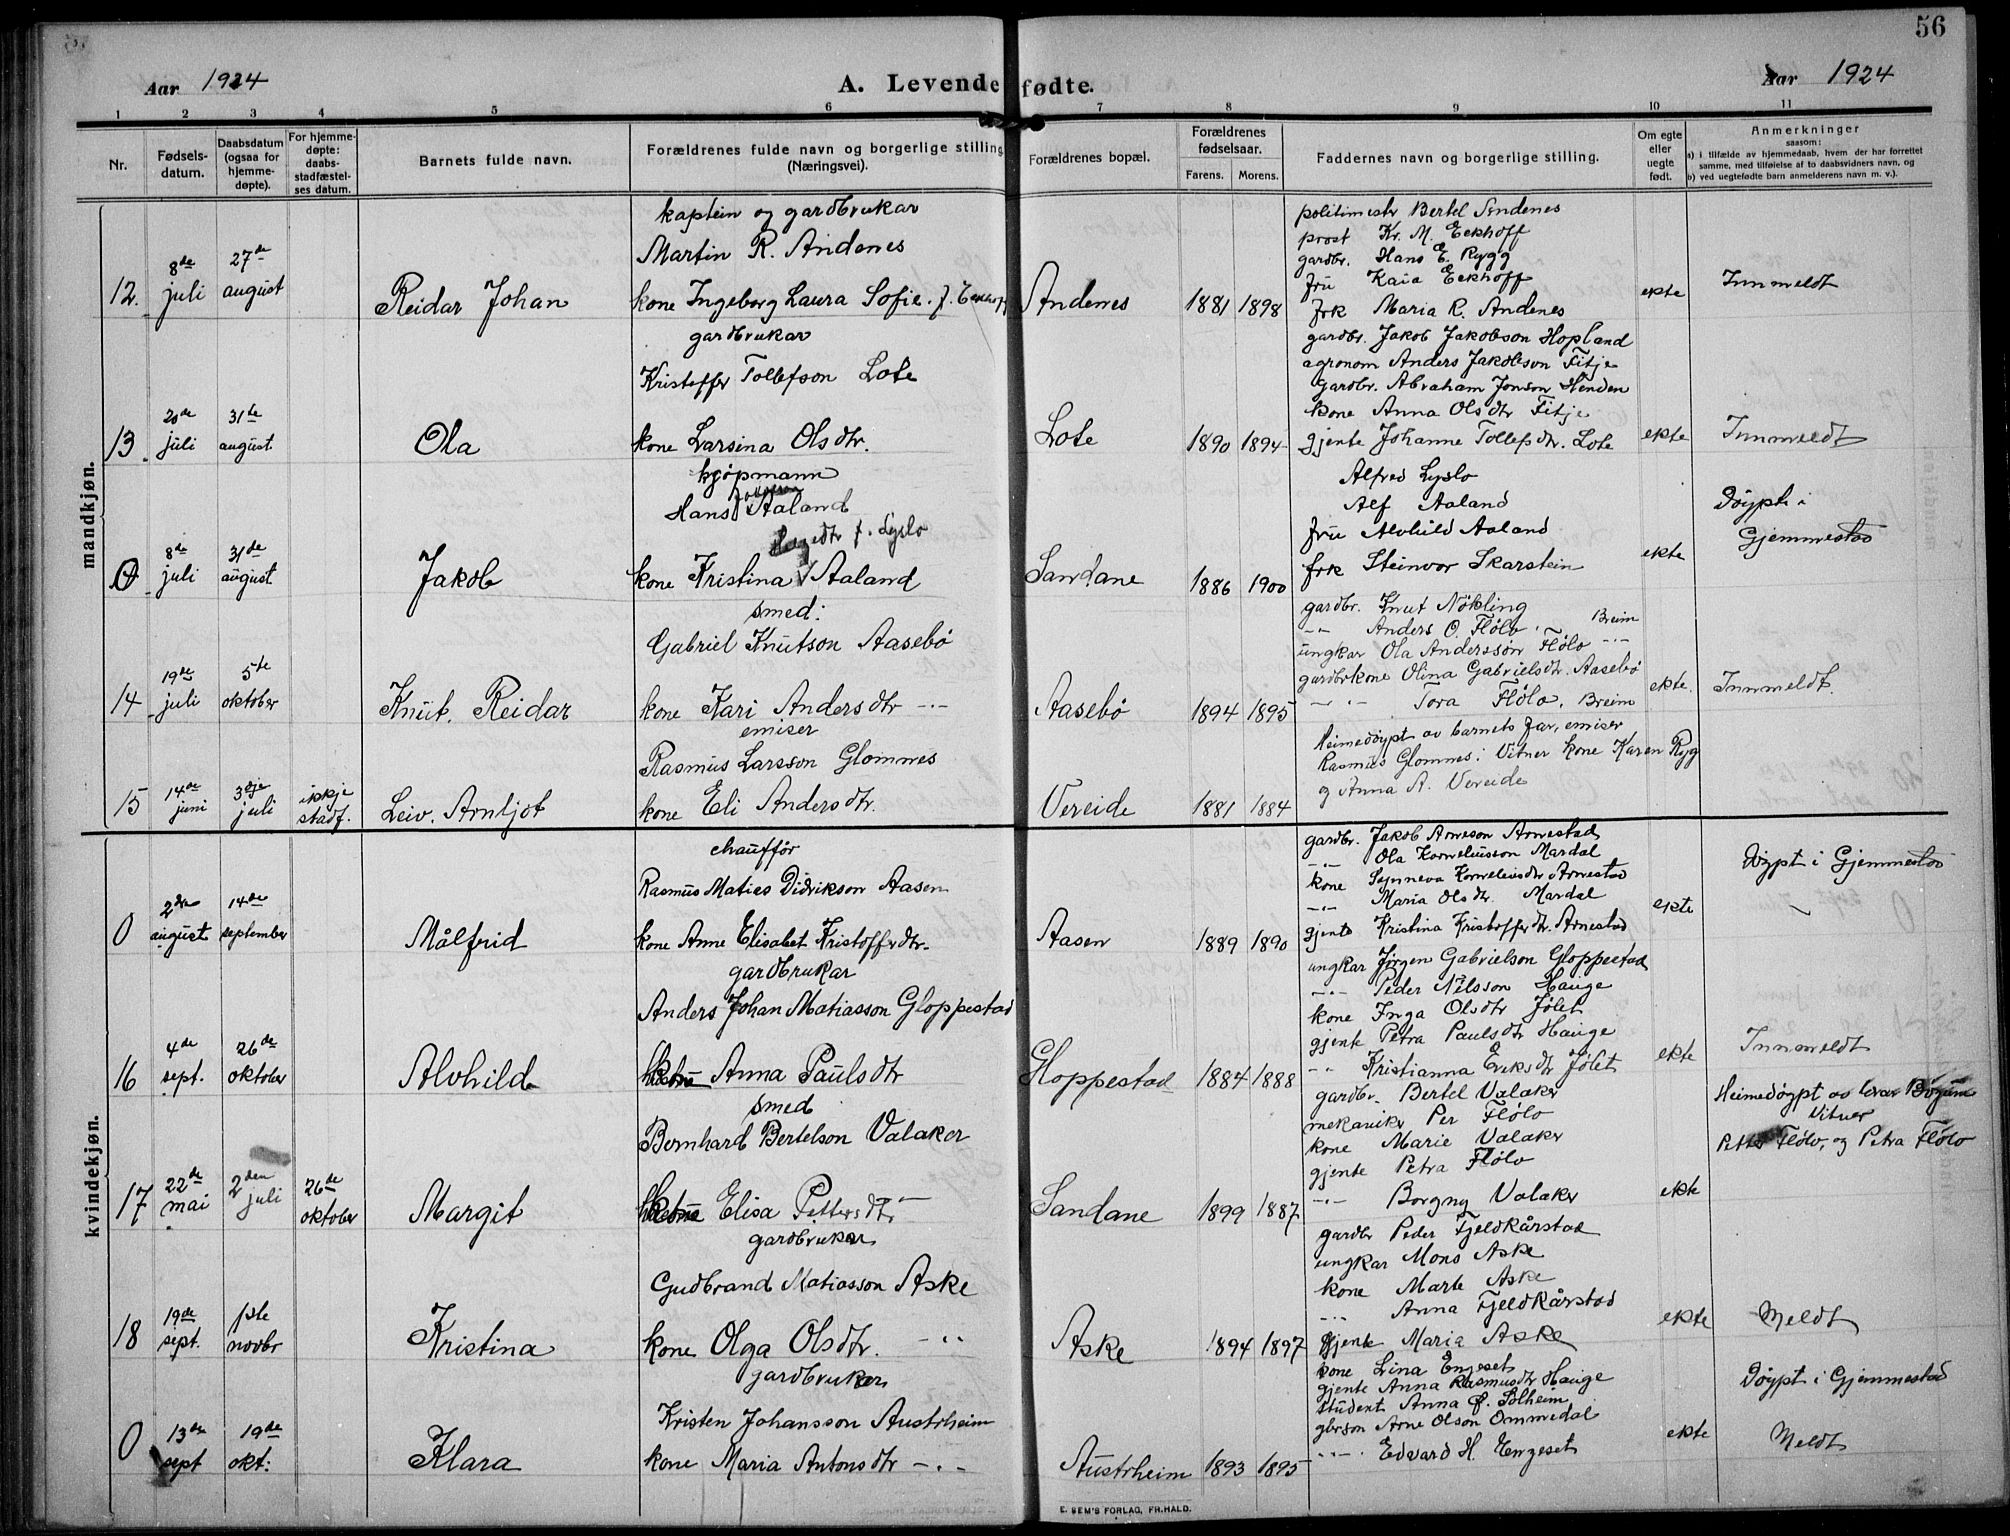 56
Aar 1924
A. Levende fødte.
Aar 1924
1 2 3 4 5 6 7 8 9 10 11
Nr.
Fødsels-
datum.
Daabsdatum
(ogsaa for
hjemme-
døpte).
For hjemme-
døpte:
daabs-
stadfæstel-
ses datum.
Barnets fulde navn.
Forældrenes fulde navn og borgerlige stilling
(Næringsvei).
Forældrenes bopæl.
Forældrenes
fødselsaar.
Farens. Morens.
Faddernes navn og borgerlige stilling.
Om egte
eller
uegte
født.
Anmerkninger
saasom:
a) i tilfælde av hjemmedaab, hvem der har forrettet
samme, med tilføielse af to daabsvidners navn, og
b) ved uegtefødte barn anmelderens navn m. v.).
mandkjøn.
12.
8de
juli
27de
august
Reidar Johan
kaptein og gardbrukar
Martin R. Andenes
kone Ingeborg Laura Sofie. f. Eckhoff
Andenes
1881 1898
politimestr Bertel Andenes
prost Kr. M. Eckhoff
gardbr. Hans E. Rygg
fru Kaia Eckhoff
frk Maria R. Andenes
ekte
Innmeldt
13.
20de
juli
31te
august
Ola
gardbrukar
Kristoffer Tollefson Lote
kone Larsina Olsdtr.
Lote
1890 1894
gardbr. Jakob Jakobson Hopland
agronom Anders Jakobson Fitje
gardbr. Abraham Jonson Henden
kone Anna Olsdtr Fitje
gjente Johanne Tollefsdtr. Lote
ekte
Innmeldt
0
8de
juli
31de
august
Jakob
kjøpmann
Hans Aaland
f. Lyslo
kone Kristina Aaland
Sandane
1886 1900
Alfred Lyslo
Alf Aaland
fru Alvhild Aaland
frk Steinvor Skarstein
ekte
Døypt i
Gjemmestad
14
19de
juli
5te
oktober
Knut. Reidar
smed:
Gabriel Knutson Aasebö
kone Kari Andersdtr -"-
Aasebö
1894 1895
gardbr. Knut Nökling
-"- Anders O. Flölo, Breim
ungkar Ola Andersson Flölo -"-
gardbrkone Olina Gabrielsdtr. Aasebö
-"- Tora Flölo, Breim
ekte.
Innmeldt.
15
14de
juni
3dje
juli
ikkje
stadf.
Leiv. Arnljot
emisær
Rasmus Larsson Glomnes
kone Eli Andersdtr.
Vereide
1881 1884
Heimedøypt av barnets far, emiser
Rasmus Glomnes. Vitner kone Karen Ryg
og Anna A. Vereide
kvindekjøn.
0
2dre
august
14de
september
Målfrid
chauffør
Rasmus Matias Didrikson Aasen
kone Anne Elisabet Kristofferdtr.
Aasen
1889 1890
gardbr. Jakob Arneson Arnestad
-"- Ola Korneliusson Mardal
kone Synneva Korneliusdtr Arnestad
-"- Maria Olsdtr. Mardal
gjente Kristina Kristofferdtr. Arnestad
ekte
Døypt i Gjemmestad
16
4de
sept.
26de
oktober
Alvhild
gardbrukar
Anders Johan Matiasson Gloppestad
kone Anna Paulsdtr
Gloppestad
1884 1888
ungkar Jörgen Gabrielson Gloppestad
-"- Peder Nilsson Hauge
kone Inga Olsdtr Jölet
gjente Petra Paulsdtr Hauge
-"- Kristianna Eriksdtr Jölet
ekte
Innmeldt
17
22de
mai
2den
juli
26de
oktober
Margit
smed
Bernhard Bertelson Valaker
kone Elisa Pettersdtr.
Sandane
1899 1887
gardbr. Bertel Valaker
mekaniker Per Flölo
kone Marie Valaker
gjente Petra Flölo
-"- Borgny Valaker
ekte
Vitner
Petter Flölo, og Petra Flölo
18
19de
sept.
1ste
novbr
Kristina
gardbruker
Gudbrand Matiasson Aske
kone Olga Olsdtr. -"-
Aske
1894 1897
gardbr Peder Fjeldkårstad
ungkar Mons Aske
kone Marte Aske
-"- Anna Fjeldkårstad
gjente Maria Aske
ekte
Meldt
0
13de
sept
19de
okt.
Klara
gardbruker
Kristen Johansson Austrheim
kone Maria Antonsdtr -"-
Austrheim
1893 1895
kone Lina Engeset
gjente Anna Rasmusdtr Hauge
student Anna Ø. Solheim
Arne Olson Ommedal
-"- Edvard H. Engeset
ekte
Døypt i Gjemmestad
Meldt
E. SEM'S FORLAG, FR.HALD.